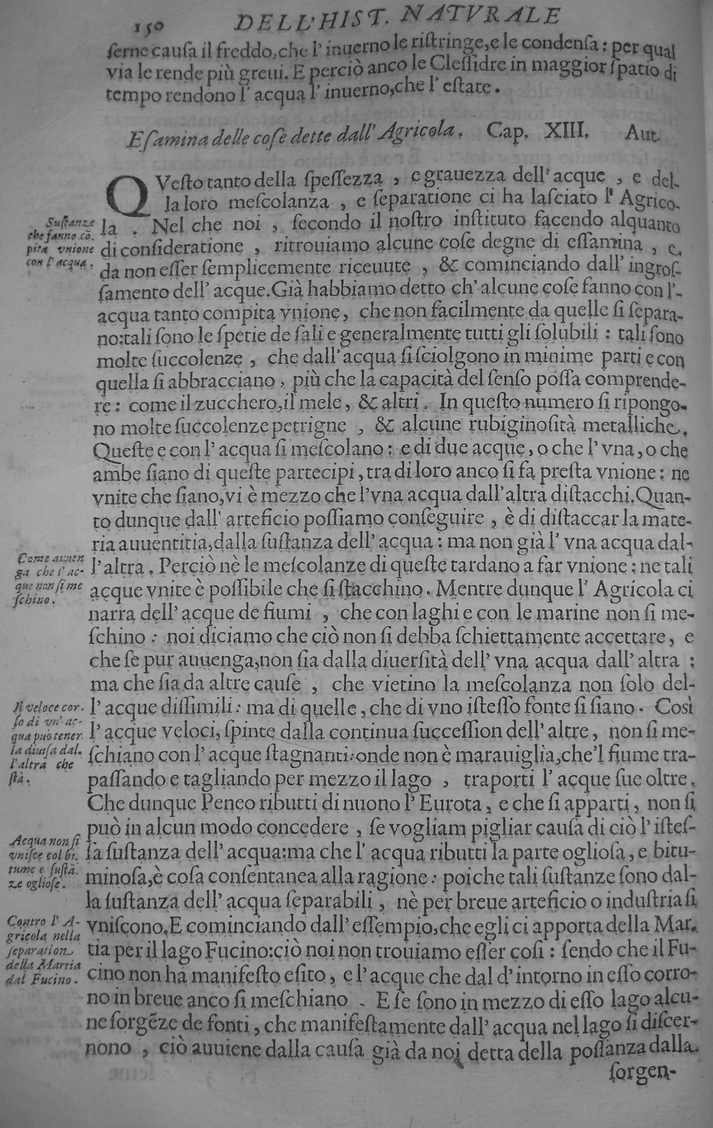 150 DELL'HIST. NATVRALE
ſerne cauſa il freddo, che l'inuerno le riſtringe, e le condenſa: per qual
via le rende più greui. E perciò anco le Cleſſidre in maggior ſpatio di
tempo rendono l'acqua l'inuerno, che l'eſtate.
Eſamina delle coſe dette dall'Agricola. Cap. XIII. Aut.
QVeſto tanto della ſpeſſezza, e grauezza dell'acque, e del-
la loro meſcolanza, e ſeparatione ci ha laſciato l'Agrico-
la. Nel che noi, ſecondo il noſtro inſtituto facendo alquanto
di conſideratione, ritrouiamo alcune coſe degne di eſſamina, e
da non eſſer ſemplicemente riceuute, & cominciando dall'ingroſ-
ſamento dell'acque. Già habbiamo detto ch'alcune coſe fanno con l'-
acqua tanto compita vnione, che non facilmente da quelle ſi ſepara-
no: tali ſono le ſpetie de ſali e generalmente tutti gli ſolubili: tali ſono
molte ſuccolenze, che dall'acqua ſi ſciolgono in minime parti e con
quella ſi abbracciano, più che la capacità del ſenſo poſſa comprende-
re: come il zucchero, il mele, & altri. In queſto numero ſi ripongo-
no molte ſuccolenze petrigne, & alcune rubiginoſità metalliche.
Queſte e con l'acqua ſi meſcolano: e di due acque, o che l'vna, o che
ambe ſiano di queſte partecipi, tra di loro anco ſi fa preſta vnione: ne
vnite che ſiano, vi è mezzo che l'vna acqua dall'altra diſtacchi. Quan-
to dunque dall'arteficio poſſiamo conſeguire, è di diſtaccar la mate-
ria auuentitia, dalla ſuſtanza dell'acqua: ma non già l'vna acqua dal-
l'altra. Perciò nè le meſcolanze di queſte tardano a far vnione: ne tali
acque vnite è poſſibile che ſi ſtacchino. Mentre dunque l'Agricola ci
narra dell'acque de fiumi, che con laghi e con le marine non ſi me-
ſchino: noi diciamo che ciò non ſi debba ſchiettamente accettare, e
che ſe pur auuenga, non ſia dalla diuerſità dell'vna acqua dall'altra:
ma che ſia da altre cauſe, che vietino la meſcolanza non ſolo del-
l'acque diſſimili: ma di quelle, che di vno iſteſſo fonte ſi ſiano. Così
l'acque veloci, ſpinte dalla continua ſucceſſion dell'altre, non ſi me-
ſchiano con l'acque ſtagnanti: onde non è marauiglia, che'l fiume tra-
paſſando e tagliando per mezzo il lago, traporti l'acque ſue oltre.
Che dunque Peneo ributti di nuono l'Eurota, e che ſi apparti, non ſi
può in alcun modo concedere, ſe vogliam pigliar cauſa di ciò l'iſteſ-
ſa ſuſtanza dell'acqua: ma che l'acqua ributti la parte oglioſa, e bitu-
minoſa, è coſa conſentanea alla ragione: poiche tali ſuſtanze ſono dal-
la ſuſtanza dell'acqua ſeparabili, nè per breue arteficio o induſtria ſi
vniſcono. E cominciando dall'eſſempio, che egli ci apporta della Mar-
tia per il lago Fucino: ciò noi non trouiamo eſſer coſi: ſendo che il Fu-
cino non ha manifeſto eſito, e l'acque che dal d'intorno in eſſo corro-
no in breue anco ſi meſchiano. E ſe ſono in mezzo di eſſo lago alcu-
ne ſorgēze de fonti, che manifeſtamente dall'acqua nel lago ſi diſcer-
nono, ciò auuiene dalla cauſa già da noi detta della poſſanza dalla
ſorgen-
Suſtanze
che fanno cō
pita vnione
con l'acqua.
Come auuen
ga che l'ac-
que non ſi me
ſchino.
Il veloce cor-
ſo di vn'ac-
qua può tener
la diuiſa dal-
l'altra che
ſtà.
Acqua non ſi
vniſce col bi-
tume e ſuſtā
ze oglioſe.
Contro l'A-
gricola nella
ſeparation
della Martia
dal Fucino.